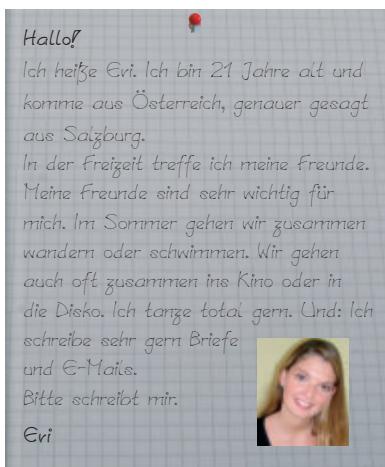 Hallo!
Ich heiße Evi. Ich bin 21 Jahre alt und
komme aus Österreich, genauer gesagt
aus Salzburg.
In der Freizeit treffe ich meine Freunde.
Meine Freunde sind sehr wichtig für
mich. Im Sommer gehen wir zusammen
wandern oder schwimmen. Wir gehen
auch oft zusammen ins Kino oder in
die Disko. Ich tanze total gern. Und: Ich
schreibe sehr gern Briefe
und E-Mails.
Bitte schreibt mir.
Evi